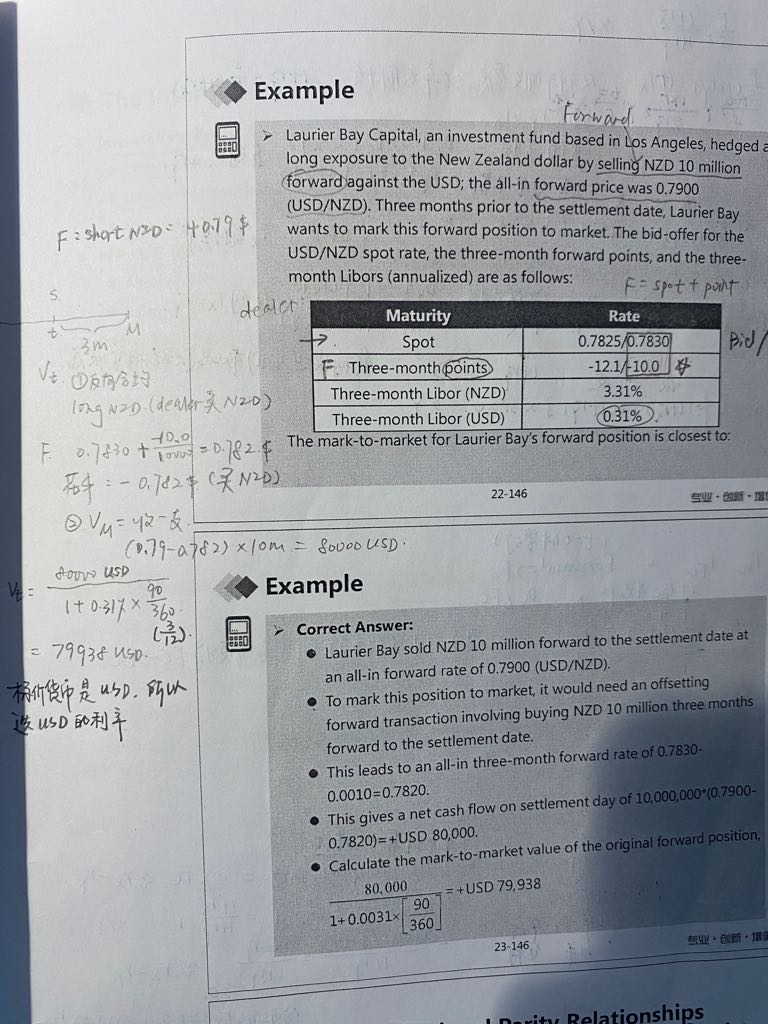 Example
Forward
Laurier Bay Capital, an investment fund based in Los Angeles, hedged a
long exposure to the New Zealand dollar by selling NZD 10 million
forward against the USD; the all-in forward price was 0.7900
(USD/NZD). Three months prior to the settlement date, Laurier Bay
wants to mark this forward position to market. The bid-offer for the
USD/NZD spot rate, the three-month forward points, and the three-
month Libors (annualized) are as follows:
F = short NZD = +0.79 $
F = spot + point
dealer:
Maturity Rate
Spot 0.7825/0.7830 Bid/
F. Three-month points -12.1/-10.0
Three-month Libor (NZD) 3.31%
Three-month Libor (USD) 0.31%
The mark-to-market for Laurier Bay's forward position is closest to:
S.
t M
3m
Vt ①反向合约
long NZD (dealer卖NZD)
F. 0.7830 + -10.0/10000 = 0.782 $
: -0.782 $ (买NZD)
② VM = 收-支
(0.79-0.782) × 10m = 80000 USD.
Vt = 80000 USD / 1 + 0.31% × 90/360
(3/12)
= 79938 USD.
标价货币是USD. 所以
选USD的利率
22-146
专业·创新·增值
Example
Correct Answer:
Laurier Bay sold NZD 10 million forward to the settlement date at
an all-in forward rate of 0.7900 (USD/NZD).
To mark this position to market, it would need an offsetting
forward transaction involving buying NZD 10 million three months
forward to the settlement date.
This leads to an all-in three-month forward rate of 0.7830-
0.0010=0.7820.
This gives a net cash flow on settlement day of 10,000,000*(0.7900-
0.7820)=+USD 80,000.
Calculate the mark-to-market value of the original forward position,
80,000 / 1+0.0031×[90/360] =+USD 79,938
23-146
专业·创新·增值
Parity Relationships